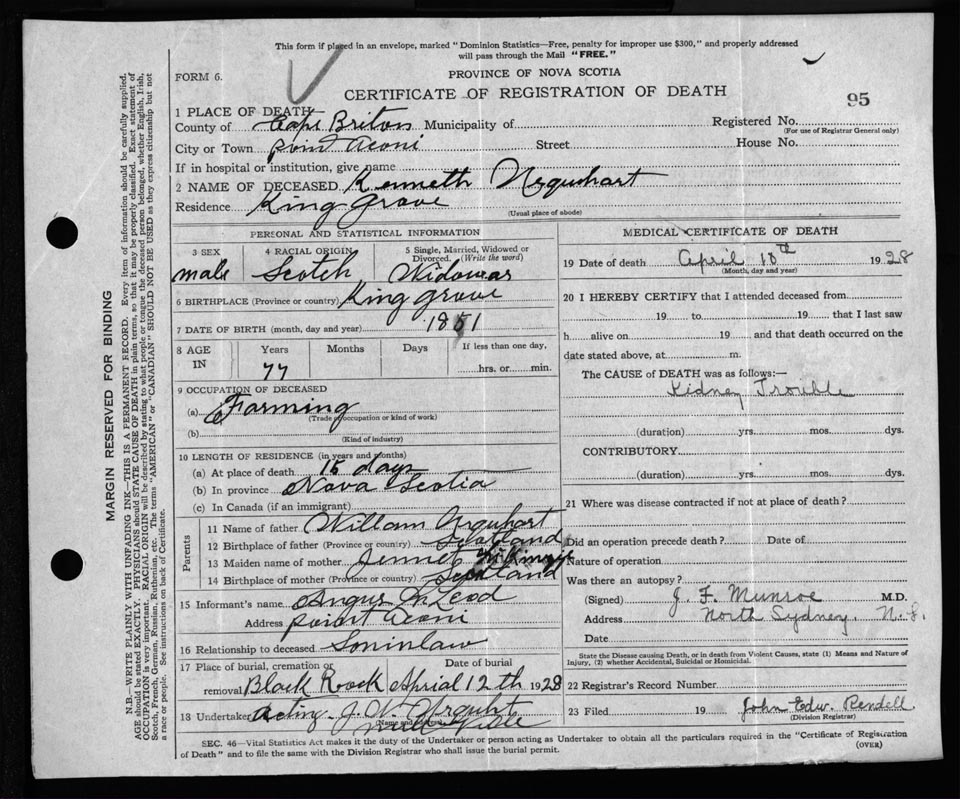 This form if placed in an envelope, marked "Dominion Statistics—Free, penalty for improper use $300," and properly addressed
will pass through the Mail "FREE."
FORM 6.
PROVINCE OF NOVA SCOTIA
CERTIFICATE OF REGISTRATION OF DEATH
95
1 PLACE OF DEATH
County of Cape Briton Municipality of
Registered No.
(For use of Registrar General only)
City or Town Point Aconi Street House No.
If in hospital or institution, give name
2 NAME OF DECEASED Kenneth Urquhart
Residence King Grove
(Usual place of abode)
PERSONAL AND STATISTICAL INFORMATION
3 SEX
male
4 RACIAL ORIGIN
Scotch
5 Single, Married, Widowed or
Divorced. (Write the word)
Widowar
6 BIRTHPLACE (Province or country) King Grove
7 DATE OF BIRTH (month, day and year) 1851
8 AGE
IN
Years
77
Months
Days
If less than one day,
hrs. or min.
9 OCCUPATION OF DECEASED
(a) Farming
(Trade occupation or kind of work)
(b)
(Kind of industry)
10 LENGTH OF RESIDENCE (in years and months)
(a) At place of death 15 days
(b) In province Nova Scotia
(c) In Canada (if an immigrant)
Parents
11 Name of father William Urquhart
12 Birthplace of father (Province or country) Scotland
13 Maiden name of mother Jennet
14 Birthplace of mother (Province or country) Scotland
15 Informant's name Angus McLeod
Address Point Aconi
16 Relationship to deceased Soninlaw
17 Place of burial, cremation or
removal Black Roock
Date of burial
Aprial 12th 1928
18 Undertaker Acting J. W. Urquhart
(Name and address)
MEDICAL CERTIFICATE OF DEATH
19 Date of death April 10th 1928
(Month, day and year)
20 I HEREBY CERTIFY that I attended deceased from
19 to 19 that I last saw
h alive on 19 and that death occurred on the
date stated above, at m.
The CAUSE of DEATH was as follows:—
Kidney Trouble
(duration) yrs. mos. dys.
CONTRIBUTORY
(duration) yrs. mos. dys.
21 Where was disease contracted if not at place of death?
Did an operation precede death? Date of
Nature of operation
Was there an autopsy?
(Signed) J. F. Munroe M.D.
Address North Sydney. N.S.
Date
State the Disease causing Death, or in death from Violent Causes, state (1) Means and Nature of
Injury, (2) whether Accidental, Suicidal or Homicidal.
22 Registrar's Record Number
23 Filed 19 John Edw. Rendell
(Division Registrar)
SEC. 46—Vital Statistics Act makes it the duty of the Undertaker or person acting as Undertaker to obtain all the particulars required in the "Certificate of Registration
of Death" and to file the same with the Division Registrar who shall issue the burial permit.
(OVER)
MARGIN RESERVED FOR BINDING
N.B.—WRITE PLAINLY WITH UNFADING INK—THIS IS A PERMANENT RECORD. Every item of information should be carefully supplied.
AGE should be stated EXACTLY. PHYSICIANS should STATE CAUSE OF DEATH in plain terms, so that it may be properly classified. Exact statement of
OCCUPATION is very important. RACIAL ORIGIN will be described by stating to what people or tongue the deceased person belonged, whether English, Irish,
Scotch, French, German, Russian, Ruthenian, etc. The terms "AMERICAN" or "CANADIAN" SHOULD NOT BE USED as they express citizenship but not
a race or people. See instructions on back of Certificate.